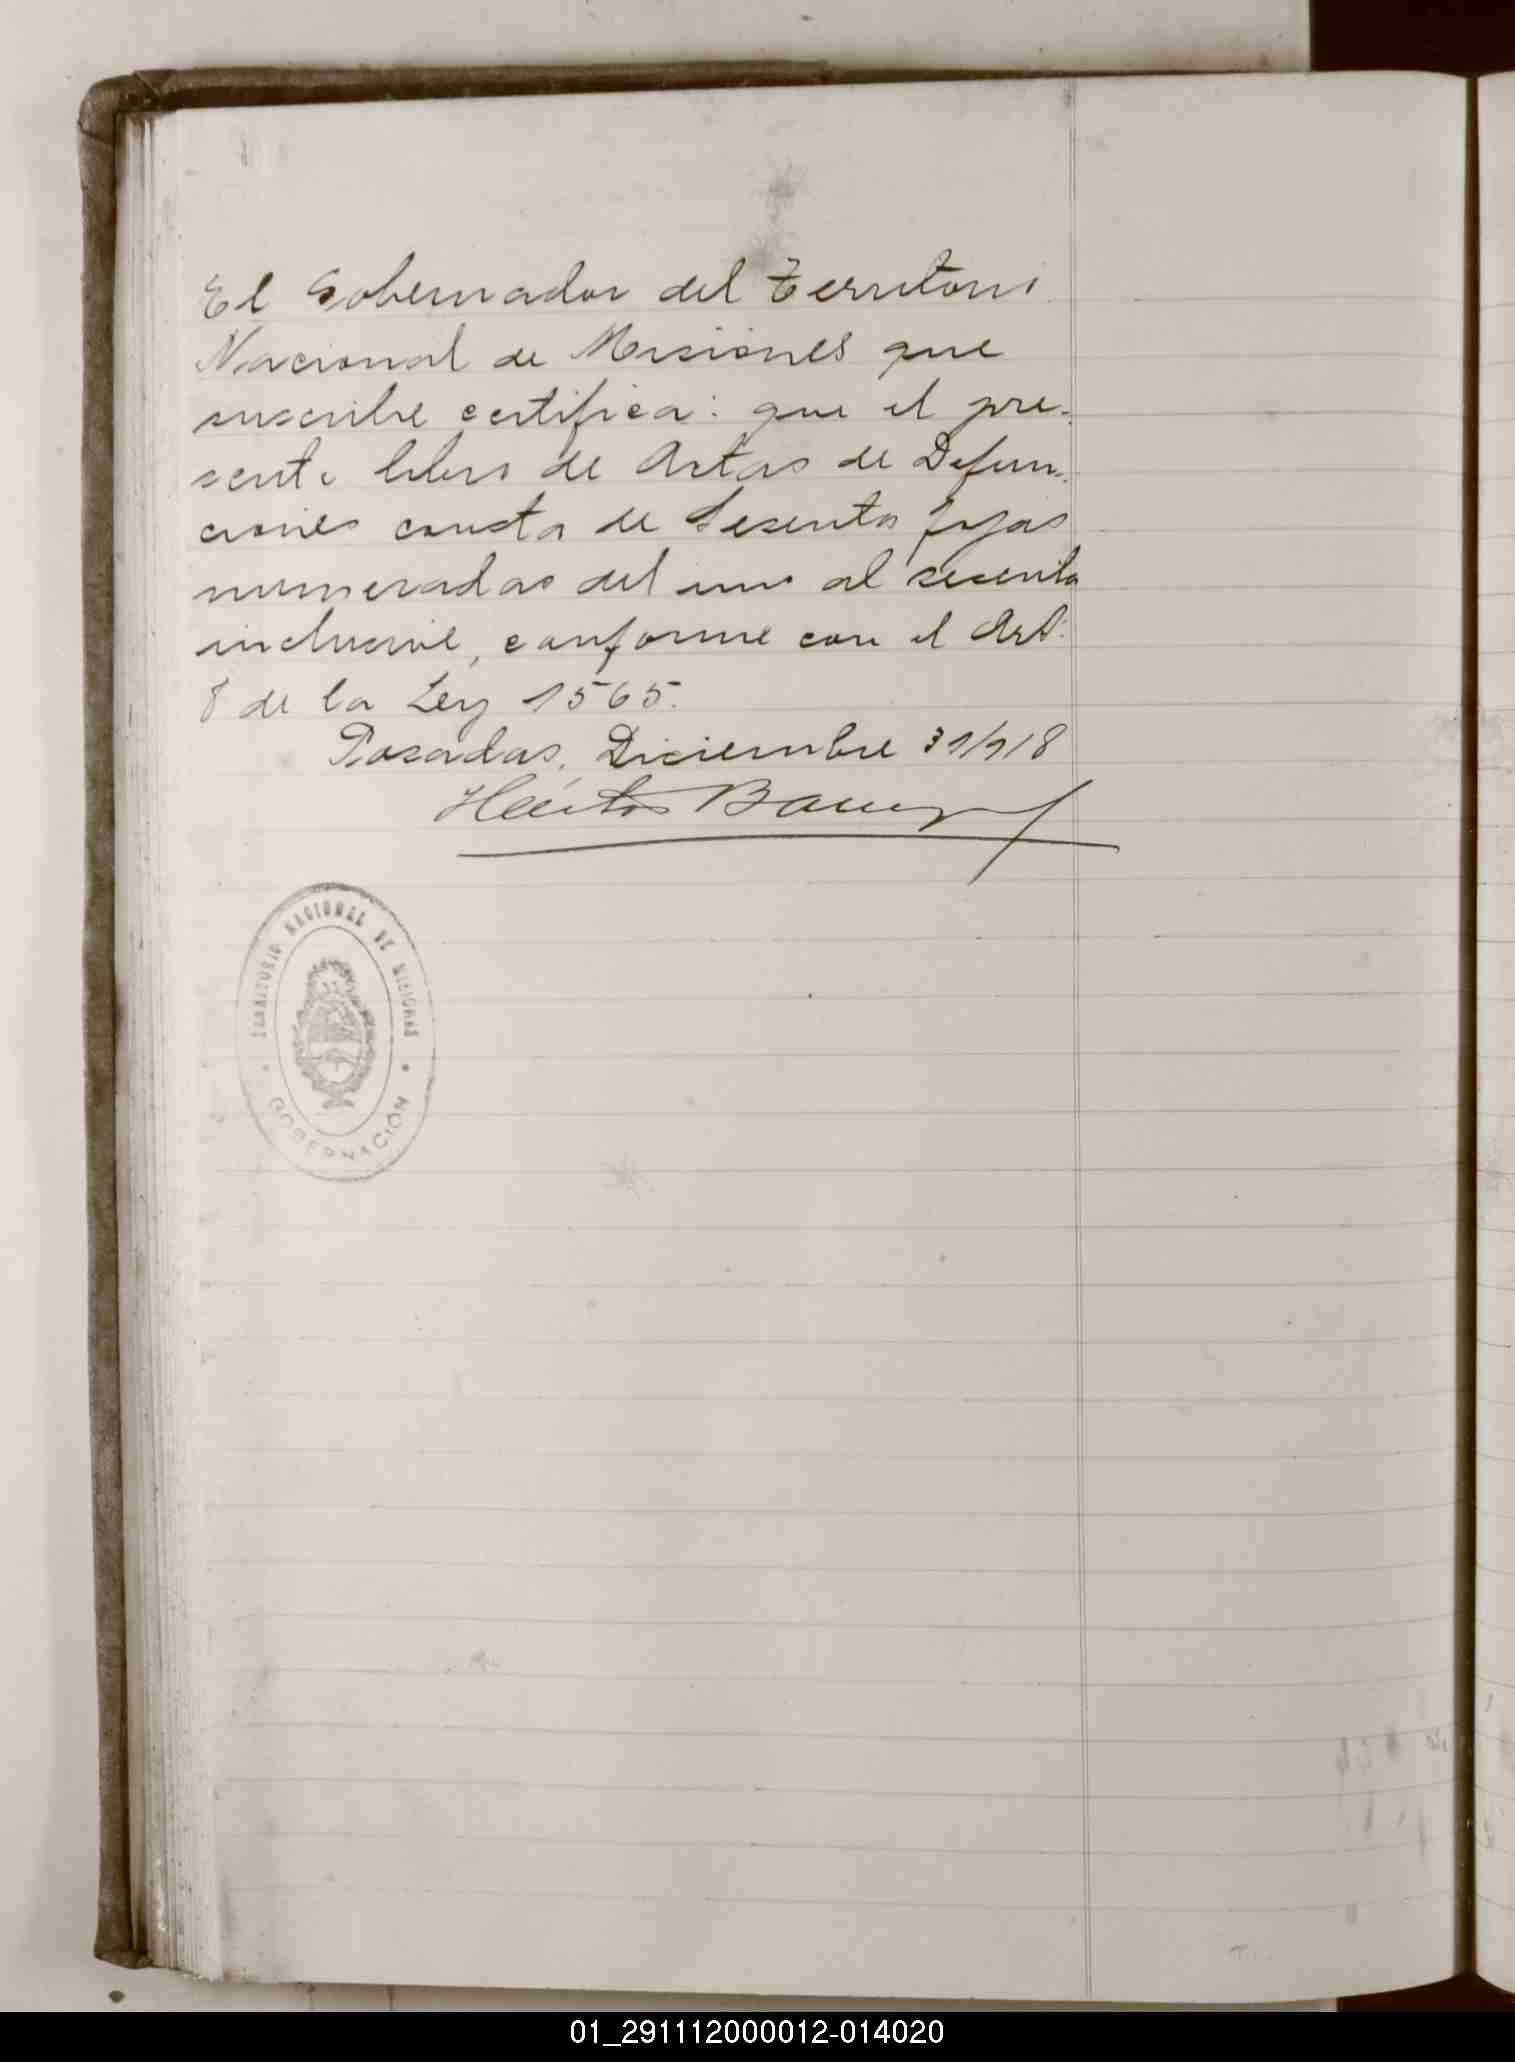 El Gobernador del Territorio
Nacional de Misiones que
suscribe certifica: que el pre-
sente libro de Actas de Defun-
ciones consta de Sesenta fojas
numeradas del uno al sesenta
inclusive, conforme con el Art.
8 de la Ley 1565.
Posadas, Diciembre 31/918
Héctor
TERRITORIO NACIONAL DE MISIONES
GOBERNACIÓN
01_291112000012-014020